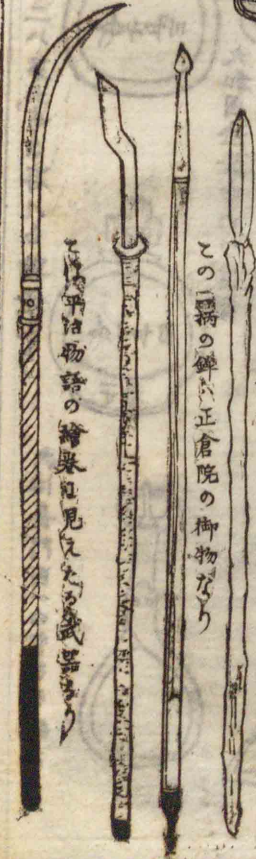 この二柄の鉾ハ正倉院の御物なり
こは平治物語の繪巻に見えたる武器なり